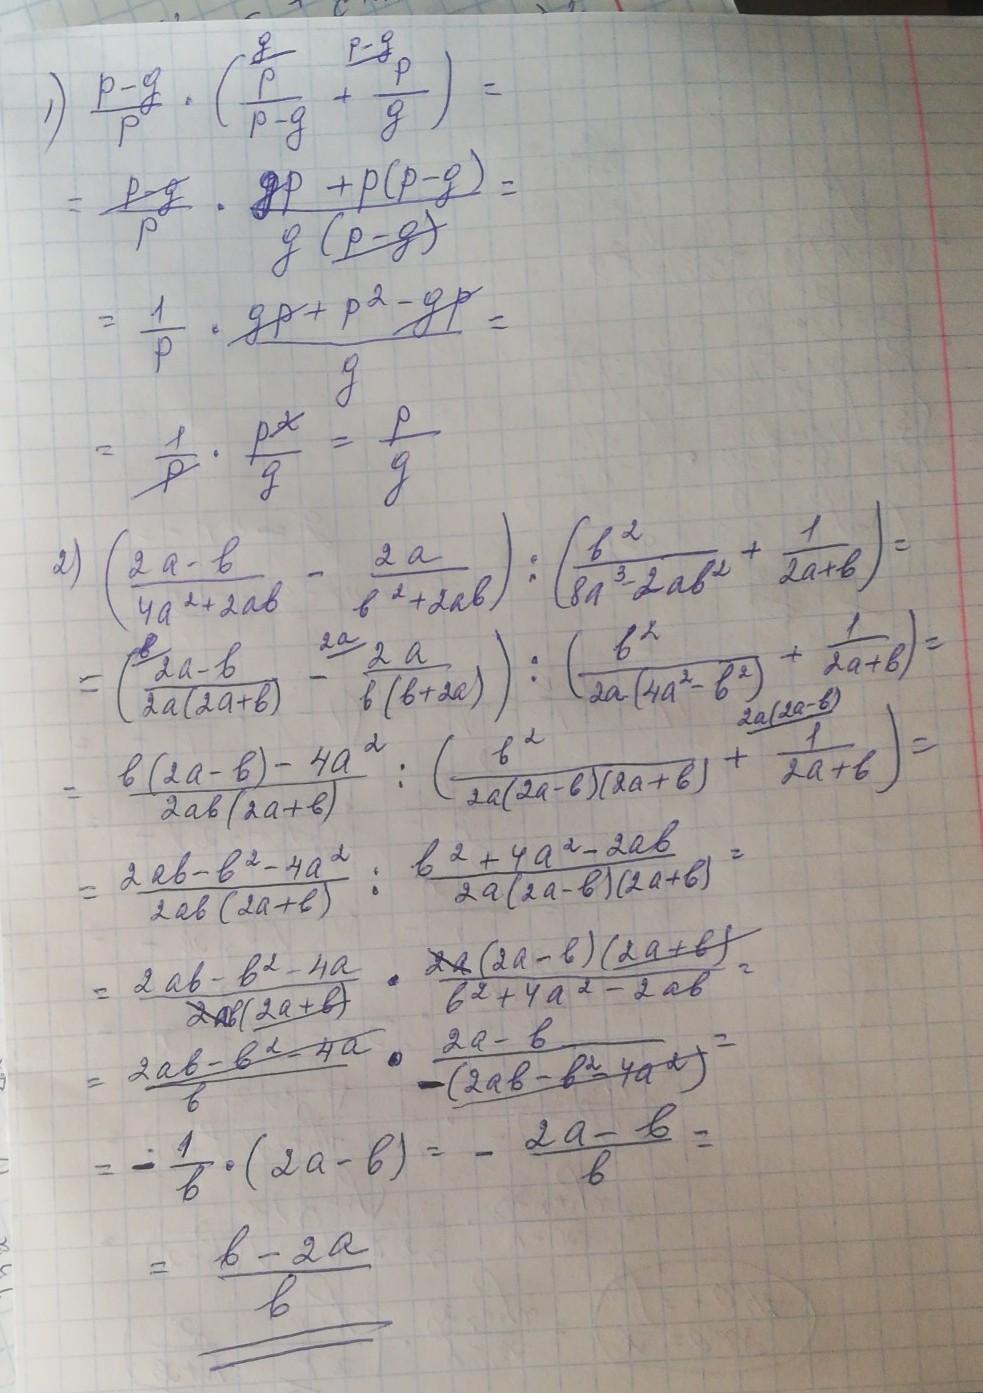 1) (p-g)/p · (p/(p-g) + p/g) =
= (p-g)/p · (gp + p(p-g))/(g(p-g)) =
= 1/p · (gp + p² - gp)/g =
= 1/p · p²/g = p/g
2) ((2a-b)/(4a²+2ab) - 2a/(b²+2ab)) : (b²/(8a³-2ab²) + 1/(2a+b)) =
= ((2a-b)/(2a(2a+b)) - 2a/(b(b+2a))) : (b²/(2a(4a²-b²)) + 1/(2a+b)) =
= (b(2a-b)-4a²)/(2ab(2a+b)) : (b²/(2a(2a-b)(2a+b)) + 1/(2a+b)) =
= (2ab-b²-4a²)/(2ab(2a+b)) : (b²+4a²-2ab)/(2a(2a-b)(2a+b)) =
= (2ab-b²-4a)/(2ab(2a+b)) · (2a(2a-b)(2a+b))/(b²+4a²-2ab) =
= (2ab-b²-4a)/b · (2a-b)/(-(2ab-b²-4a²)) =
= -1/b · (2a-b) = - (2a-b)/b =
= (b-2a)/b